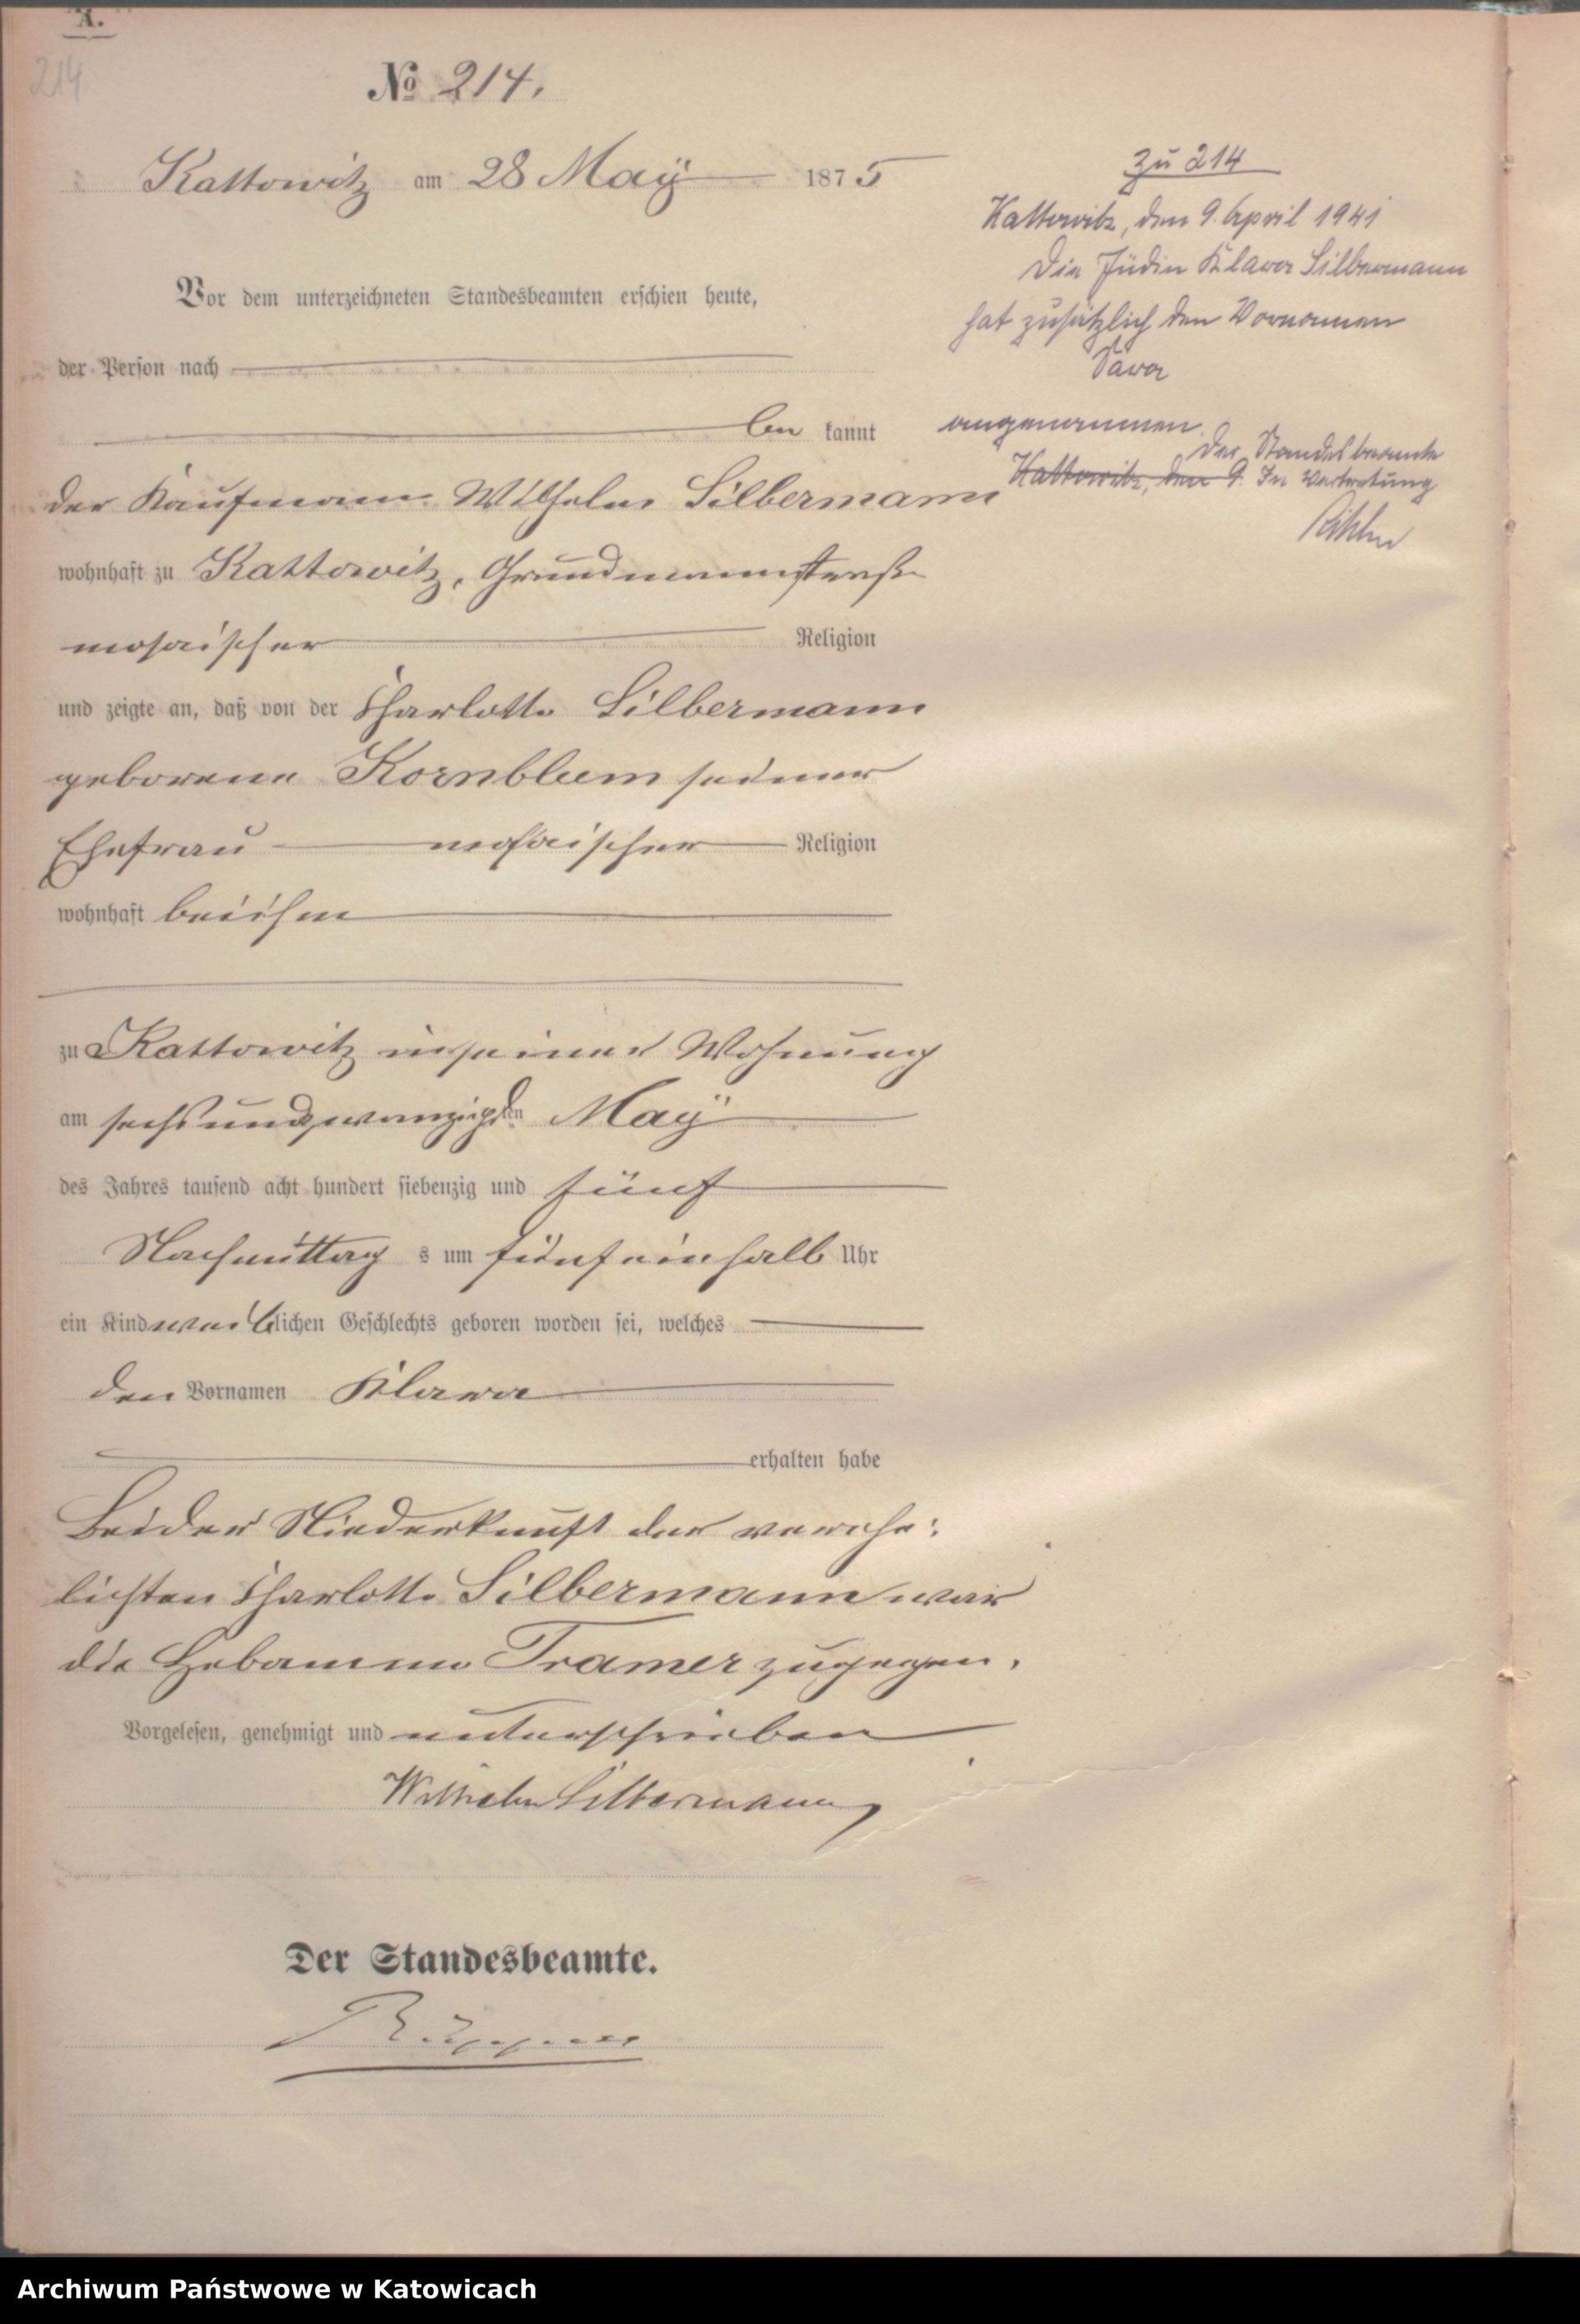 A.
214
№ 214.
Kattowitz am 28 Maÿ 1875
Vor dem unterzeichneten Standesbeamten erschien heute,
der Person nach
be kannt
der Kaufmann Wilhelm Silbermann
wohnhaft zu Kattowitz, Grundmannstraße
mosaischer Religion
und zeigte an, daß von der Charlotte Silbermann
geborene Kornblum seiner
Ehefrau mosaischer Religion
wohnhaft bei ihm
zu Kattowitz in seiner Wohnung
am sechsundzwanzigsten Maÿ
des Jahres tausend acht hundert siebenzig und fünf
Nachmittag s um fünfeinhalb Uhr
ein Kind weiblichen Geschlechts geboren worden sei, welches
den Vornamen Klara
erhalten habe
Bei der Niederkunft der verehe:
lichten Charlotte Silbermann war
die Hebamme Tramer zugegen.
Vorgelesen, genehmigt und unterschrieben
Wilhelm Silbermann
Der Standesbeamte.
zu 214
Kattowitz, den 9. April 1941
Die Jüdin Klara Silbermann
hat zusätzlich den Vornamen
Sara
angenommen.
Der Standesbeamte
Kattowitz, den 9. In Vertretung
Archiwum Państwowe w Katowicach